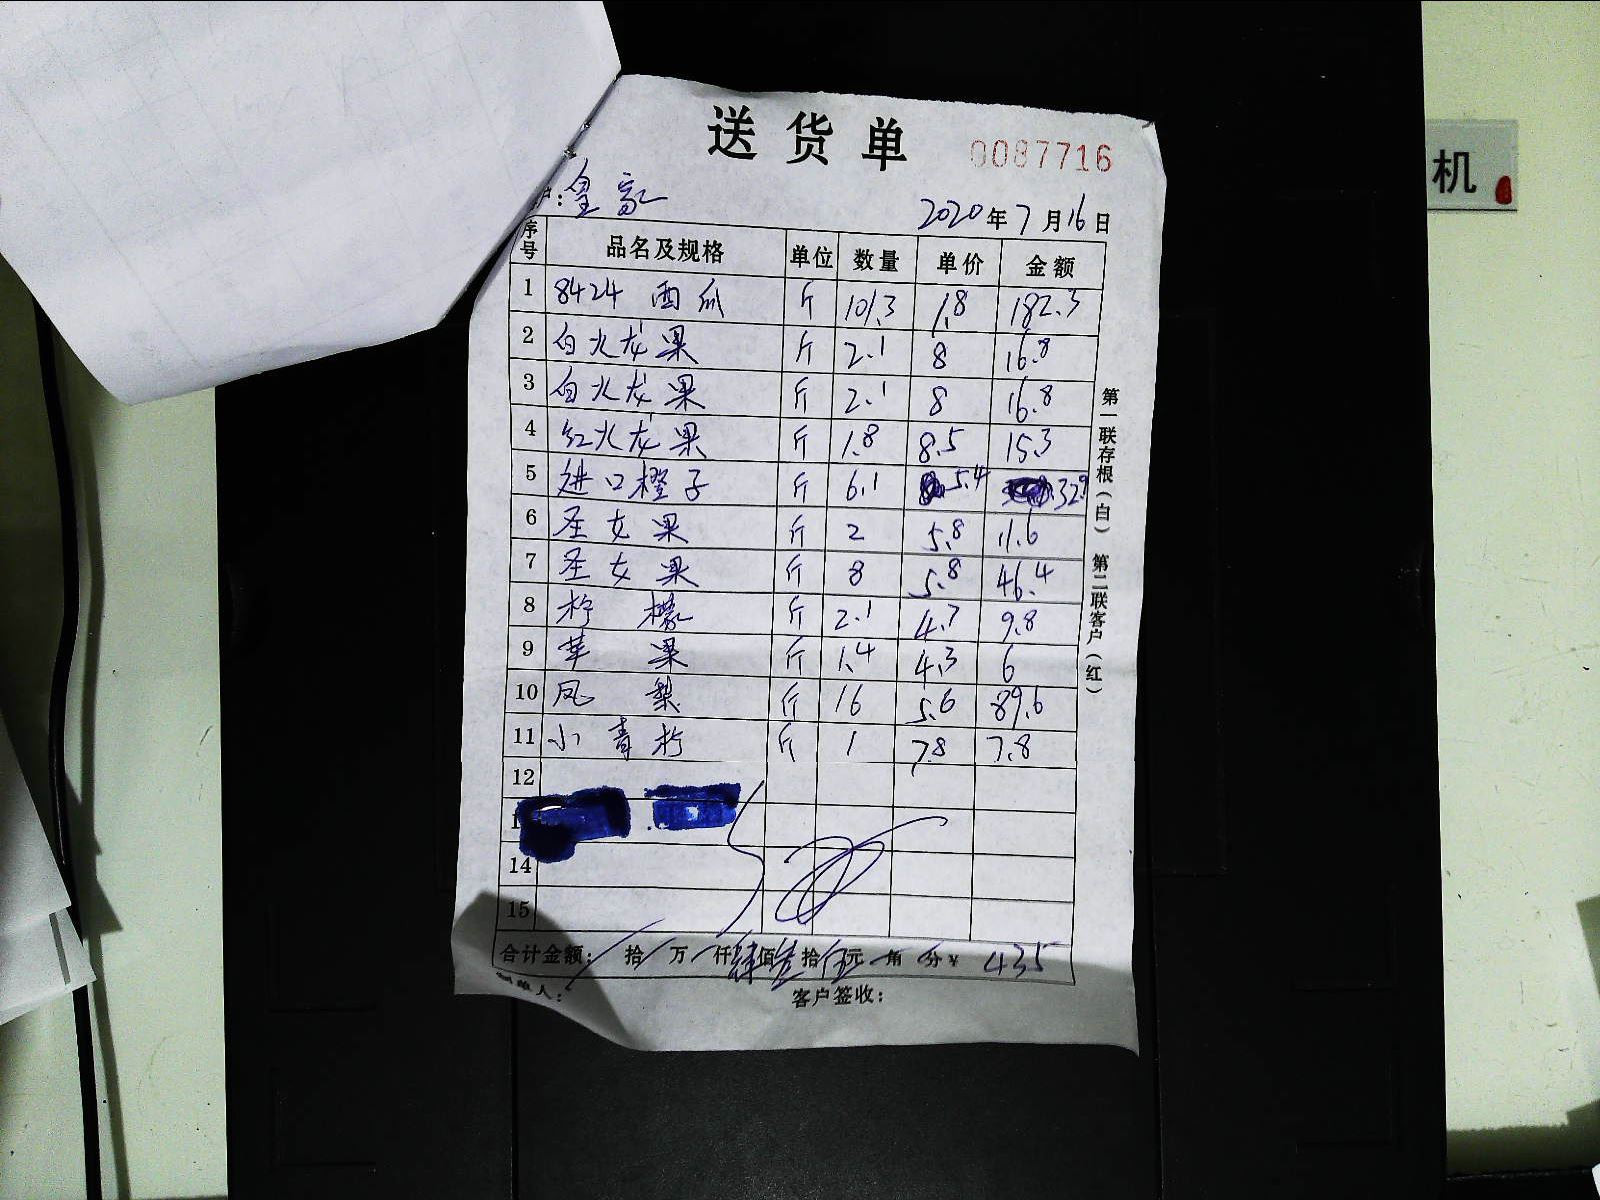 送货单 0087716
户：皇家
2020年7月16日
序号 品名及规格 单位 数量 单价 金额
1 8424 西瓜 斤 101.3 1.8 182.3
2 白火龙果 斤 2.1 8 16.8
3 白火龙果 斤 2.1 8 16.8
4 红火龙果 斤 1.8 8.5 15.3
5 进口橙子 斤 6.1 5.4 32.9
6 圣女果 斤 2 5.8 11.6
7 圣女果 斤 8 5.8 46.4
8 柠檬 斤 2.1 4.7 9.8
9 苹果 斤 1.4 4.3 6
10 凤梨 斤 16 5.6 89.6
11 小青柠 斤 1 7.8 7.8
12
14
15
合计金额： 拾 万 仟肆佰 拾伍元 角 分￥ 435
制单人： 客户签收：
第一联存根（白） 第二联客户（红）
机